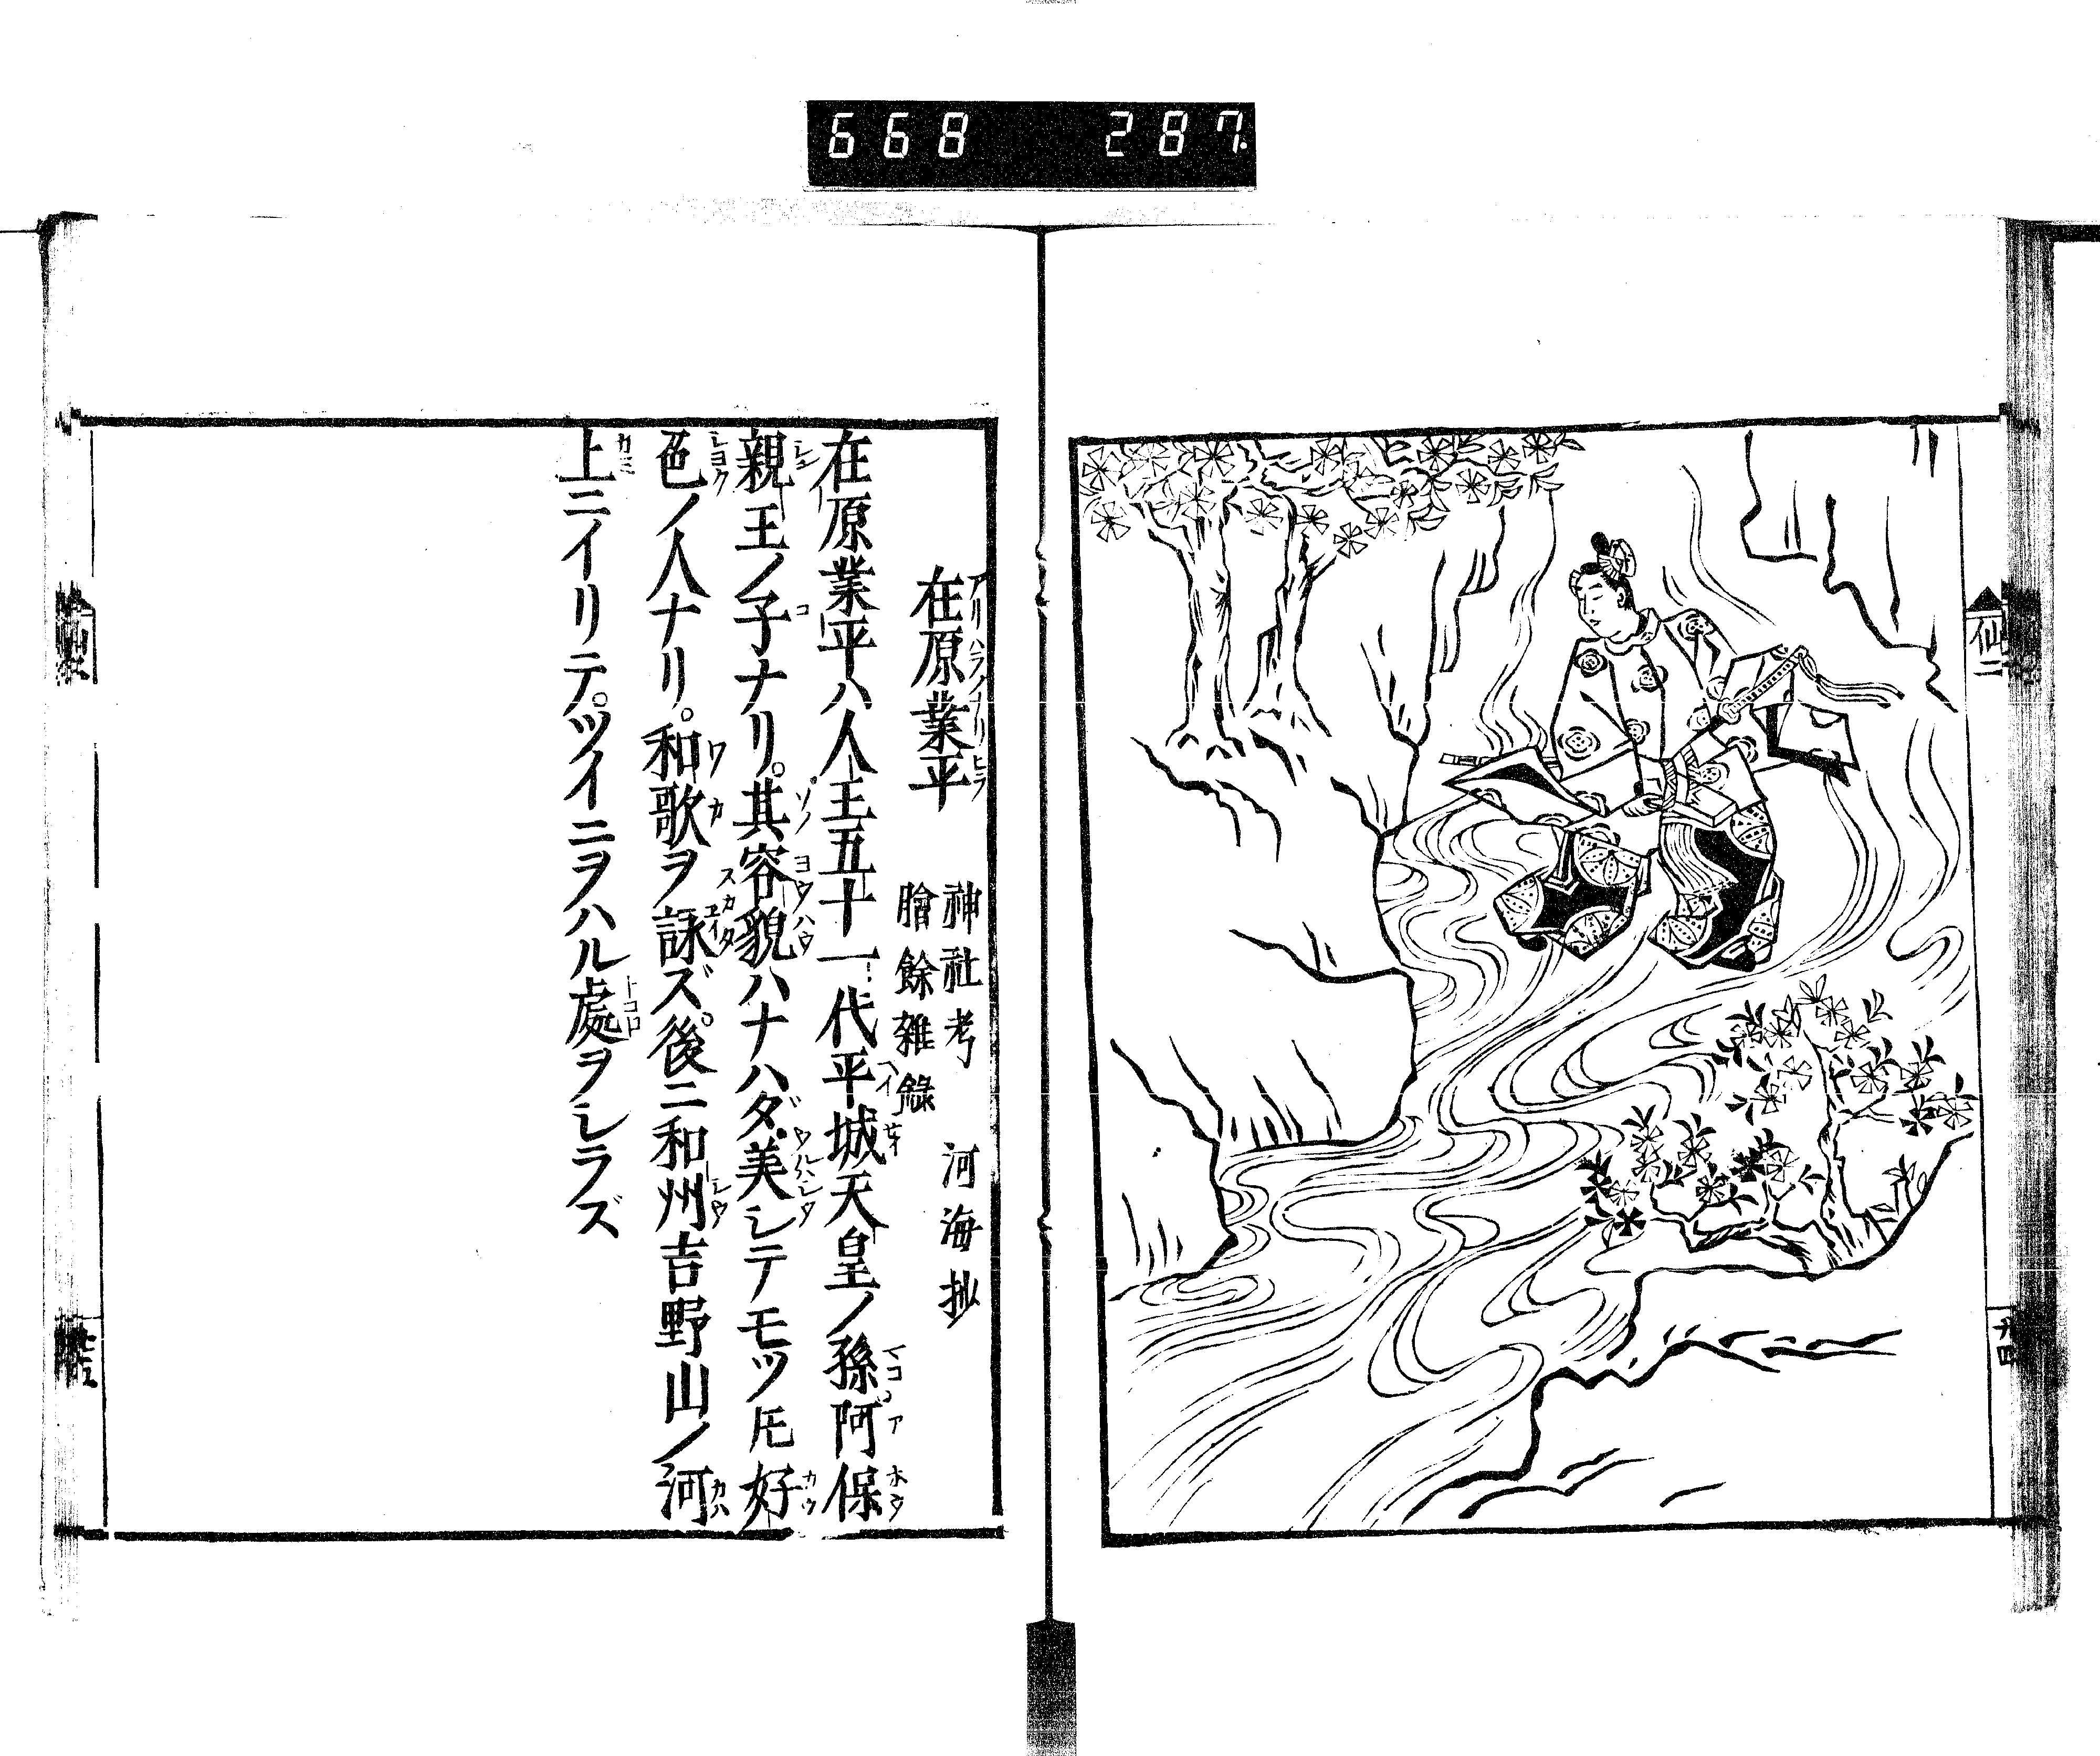 668 287
仙二
廿四
在原業平 神社考 河海抄
膾餘雑錄
在原業平ハ人王五十一代平城天皇ノ孫阿保
親王ノ子ナリ。其容貌ハナハダ美シテモツトモ好
色ノ人ナリ。和歌ヲ詠ズ。後ニ和州吉野山ノ河
上ニイリテ。ツイニヲハル處ヲシラズ